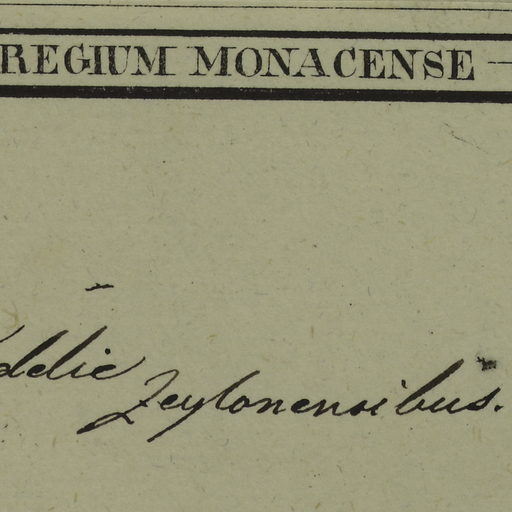 REGIUM MONACENSE
Zeylonensibus.